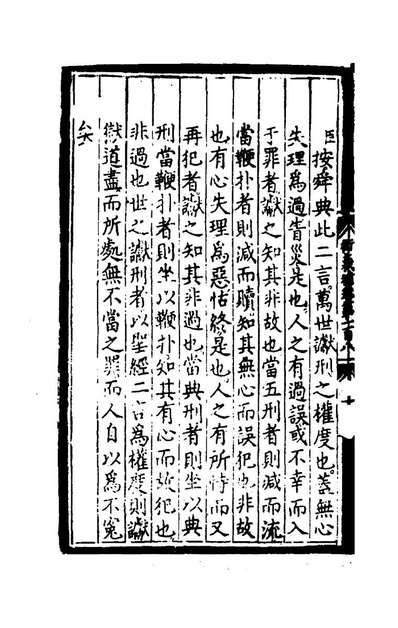 臣按舜典此二言萬世讞刑之權度也蓋無心
失理為過眚災是也人之有過誤或不幸而入
于罪者讞之知其非故也當五刑者則減而流
當鞭扑者則減而贖知其無心而誤犯也非故
也有心失理為惡怙終是也人之有所恃而又
再犯者讞之知其非過也當典刑者則坐以典
刑當鞭扑者則坐以鞭扑知其有心而故犯也
非過也世之讞刑者以聖經二言為權度則讞
獄道盡而所處無不當之罪而人自以為不冤
矣